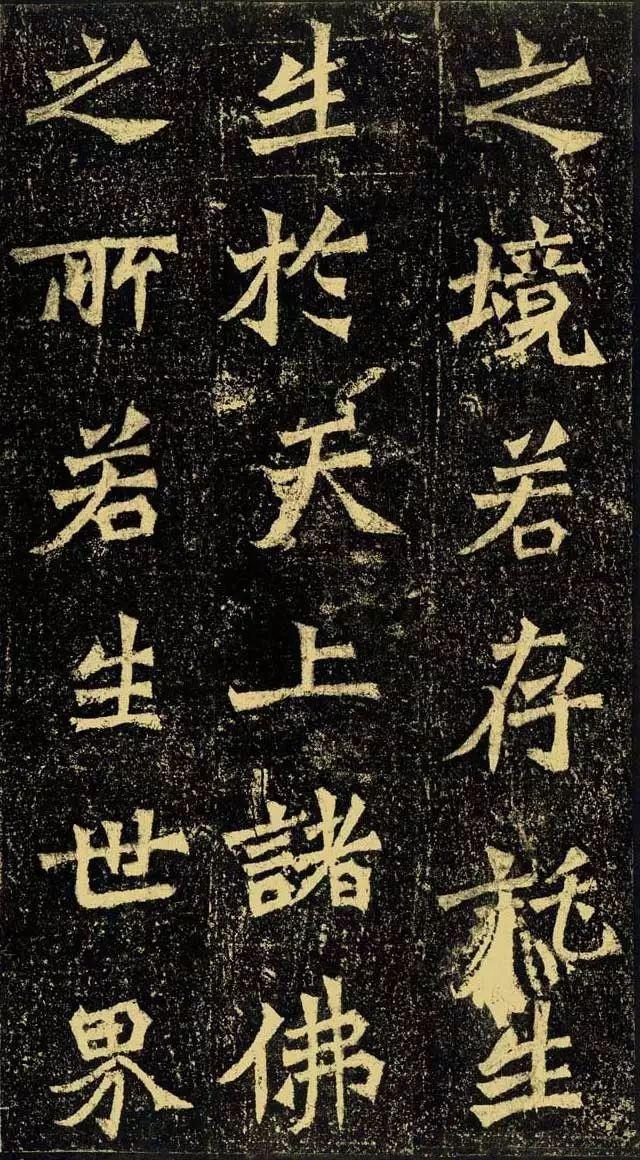 之境若存託生
生於天上諸佛
之所若生世界